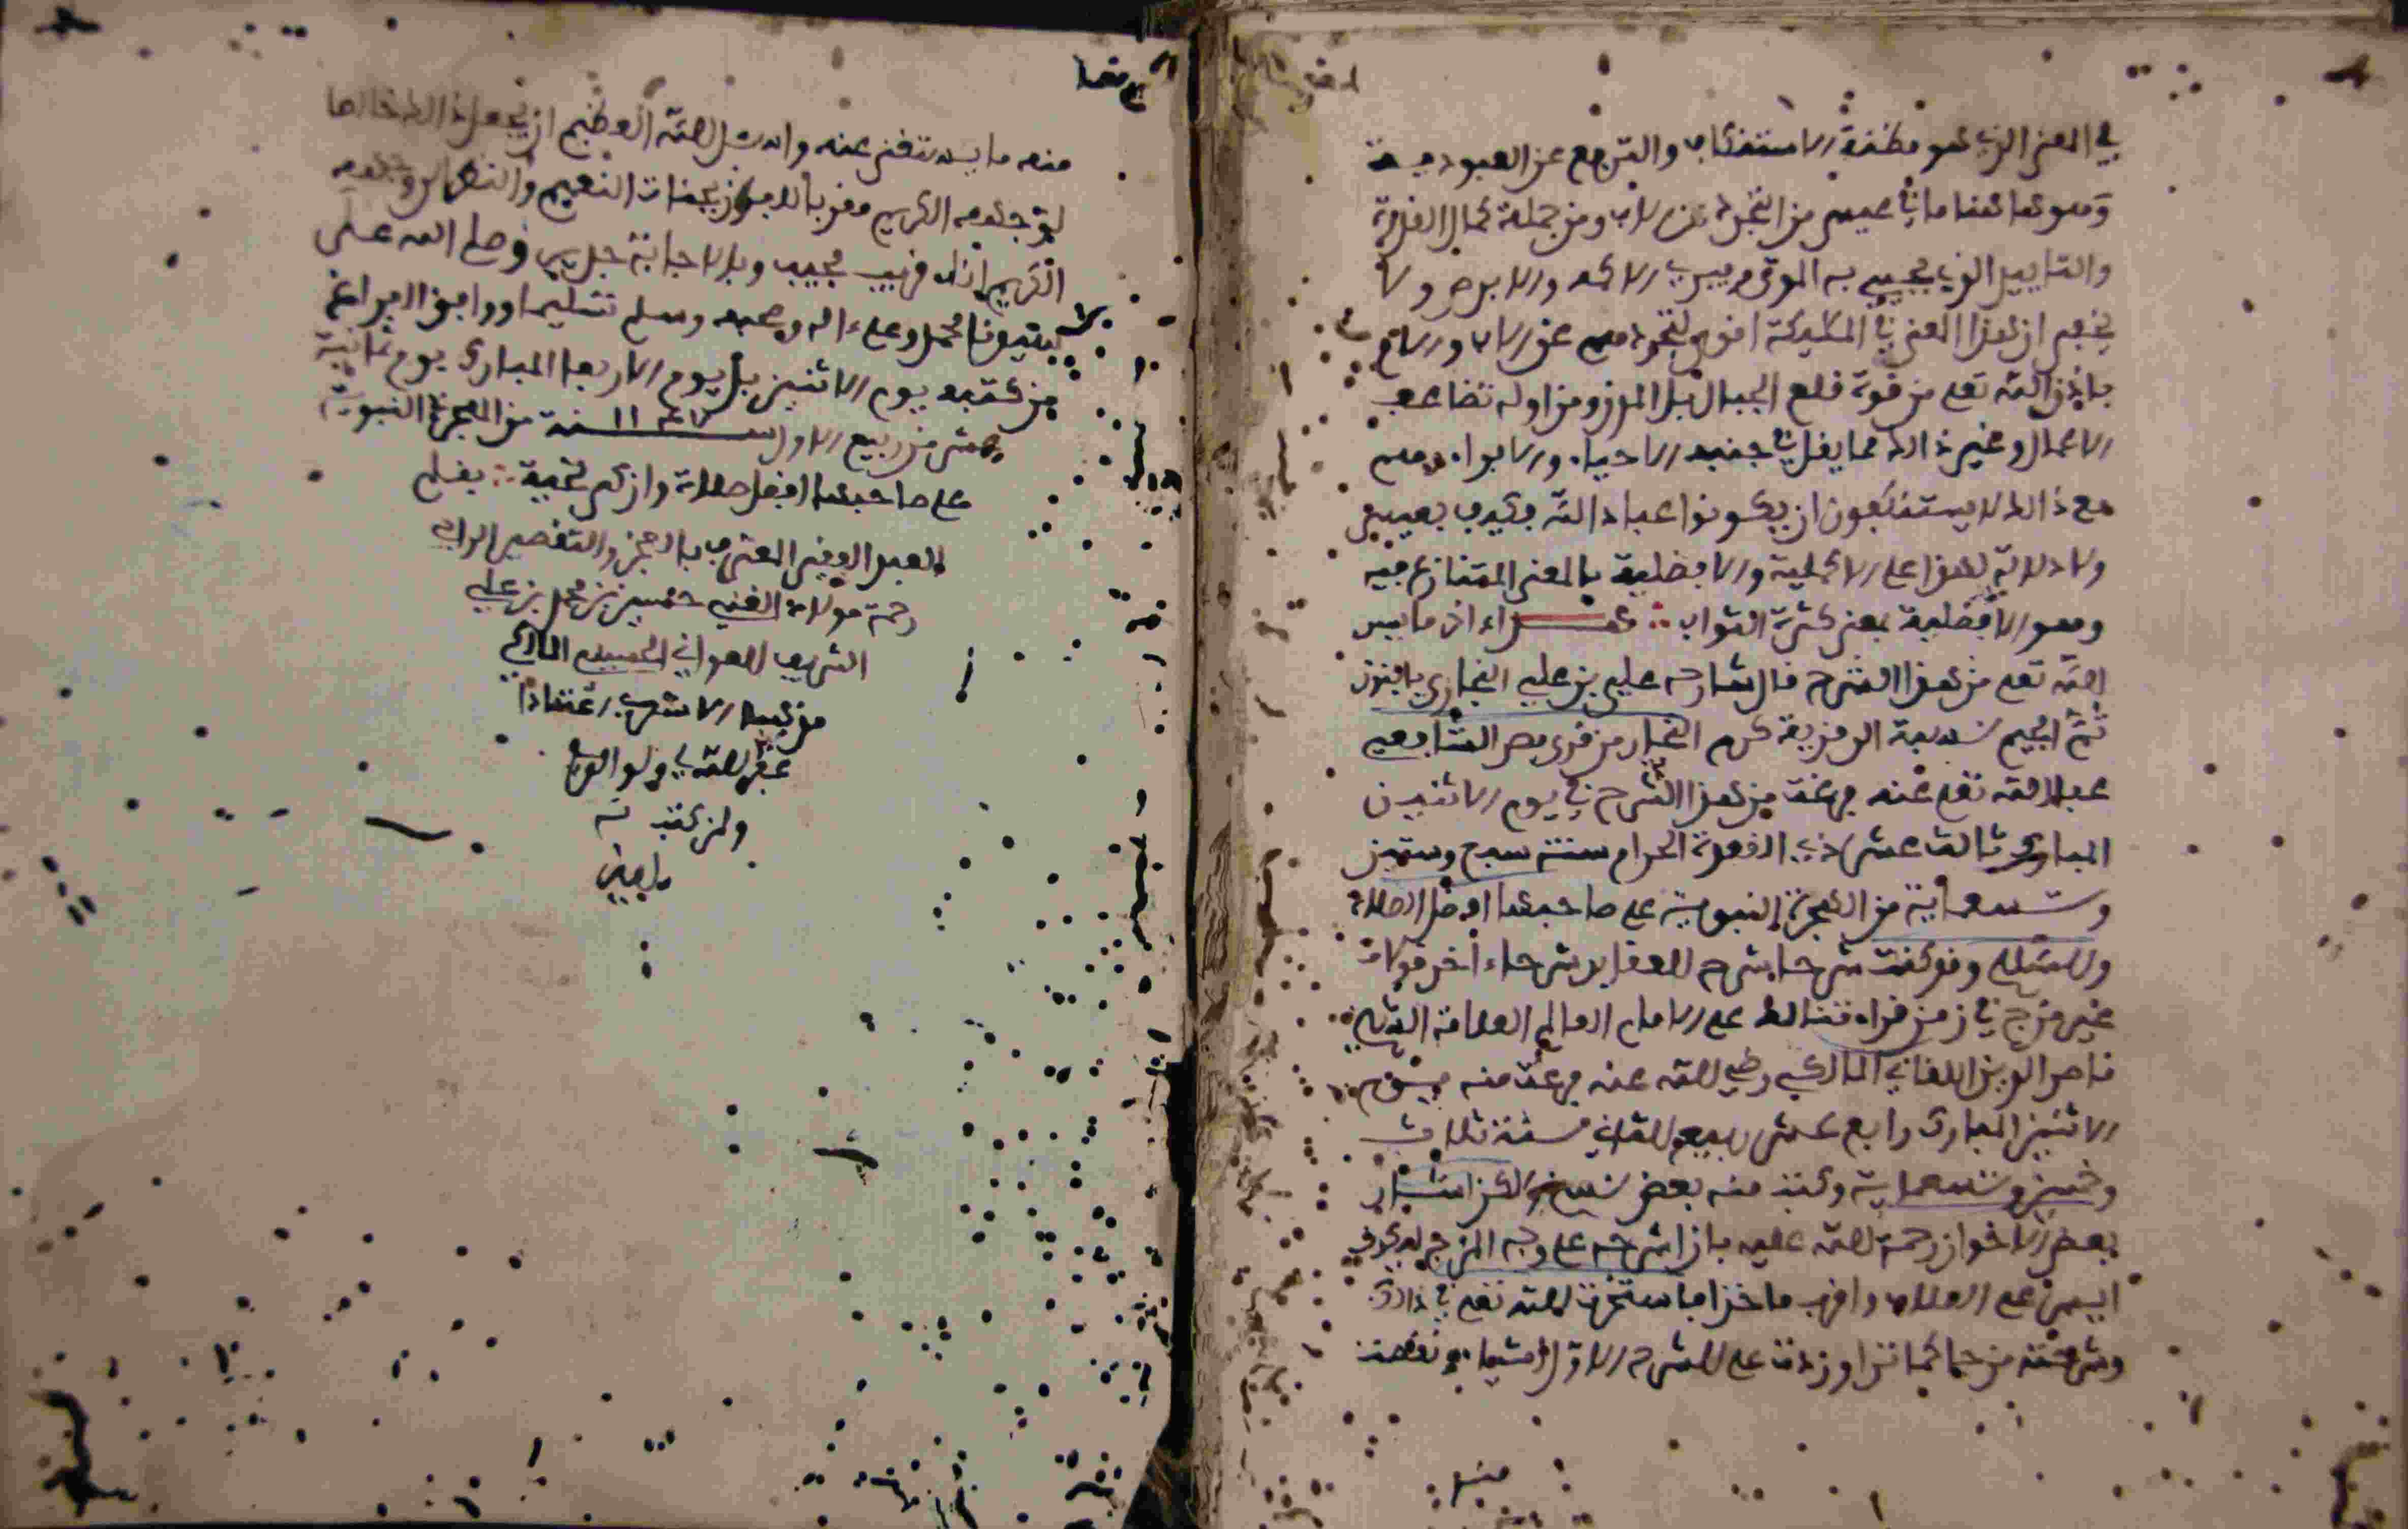 في المعنى الذي هو مظنة الاستنكاف والترفع عن العبودية
وهو هاهنا ما في عيسى من التجرد عن الاب ومن جملة كمال القدرة
والتاييد الذي يحيي به الموتى ويبري الاكمه والابرص ولا
يخفى ان هذا المعنى في الملايكة اقوى لتجردهم عن الاب والام
باذن الله تعلى من قوة قلع الجبال بل المدن ومزاولة تضاعف
الاعمال وغير ذالك مما يقل في جنبه الاحياء والابراء وهم
مع ذالك لا يستنكفون ان يكونوا عبادا لله فكيف بعيسى
ولا دلالة لهذا على الاكملية والافضلية بالمعنى المتنازع فيه
وهو الافضلية بمعنى كثرة الثواب هذا اخر ما يسر
الله تعلى من هذا الشرح قال شارحه علي بن علي النجاري بالنون
ثم الجيم نسبة الى قرية كوم النجار من قرى مصر الشافعي
عفا الله تعلى عنه فرغت من هذا الشرح في يوم الاثنين
المبارك ثالث عشر ذي القعدة الحرام سنة سبع وستين
وتسعماية من الهجرة النبوية على صاحبها افضل الصلاة
والسلام وقد كنت شرحت شرح العقايد شرحا اخر قولات
غير مزج في زمن قراءتنا له على الامام العالم العلامة الشيخ
ناصر الدين اللقاني المالكي رضي الله عنه فرغت منه في يوم
الاثنين المبارك رابع عشر ربيع الثاني سنة ثلاث
وخمسين وتسعماية وكتب منه بعض نسخ لكن اشار
بعض الاخوان رحمة الله عليه بان اشرحه على وجه المزج ليكون
ايسر على الطلاب واقرب ماخذا فاستخرت الله تعلى في ذالك
وشرحته مزجا كما ترا وزدت على الشرح الاول اشياء ونقصت
منه
منه ما يستغنى عنه واسئل الله العظيم ان يجعل ذالك خالصا
لوجهه الكريم مقربا للفوز بجنات النعيم والنظر الى وجهه
الكريم انه قريب مجيب وبالاجابة جدير وصلى الله على
سيدنا محمد وعلى اله وصحبه وسلم تسليما ووافق الفراغ
من كتبه يوم الاثنين بل يوم الاربعا المبارك يوم ثمانية
عشر من ربيع الاول سنة من الهجرة النبوية
على صاحبها افضل صلاة وازكى تحية بقلم
العبد الفقير المعترف بالعجز والتقصير الراجي
رحمة مولاه الغني حسين بن محمد بن علي
الشريف العواني الحسيني المالكي
مذهبا الاشعري اعتقادا
غفر الله له ولوالديه
ولمن كتب له
امين